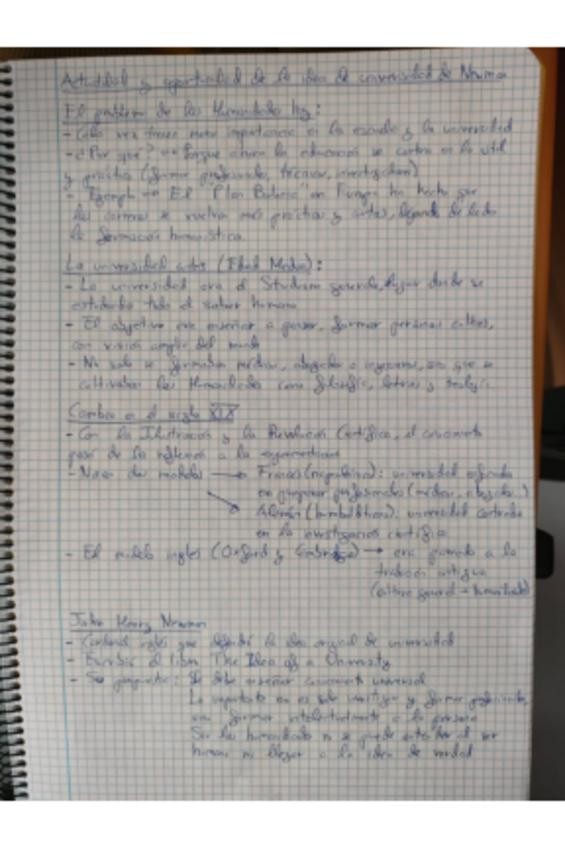 Actualidad y oportunidad de la idea de universidad de Newman
El problema de las Humanidades hoy:
- Cada vez tienen menos importancia en la escuela y la universidad
- ¿Por qué? → Porque ahora la educación se centra en lo útil
y práctico (formar profesionales, técnicos, investigadores)
- Ejemplo → El "Plan Bolonia" en Europa ha hecho que
las carreras se vuelvan más prácticas y cortas, dejando de lado
la formación humanística.
La universidad antes (Edad Media):
- La universidad era el Studium generale, lugar donde se
estudiaba todo el saber humano
- El objetivo era enseñar a pensar, formar personas cultas,
con visión amplia del mundo
- No solo se formaban médicos, abogados o ingenieros, sino que se
cultivaban las Humanidades como filosofía, letras y teología.
Cambio en el siglo XIX
- Con la Ilustración y la Revolución Científica, el conocimiento
pasó de la reflexión a la experimentación
- Nacen dos modelos → Francés (napoleónico): universidad enfocada
en preparar profesionales (médicos, abogados...)
Alemán (humboldtiano): universidad centrada
en la investigación científica
- El modelo inglés (Oxford y Cambridge) → era guardado a la
tradición antigua
(cultura general + humanidades)
John Henry Newman
- Cardenal inglés que defendió la idea original de universidad
- Escribió el libro The Idea of a University
- Su propuesta: Se debe enseñar conocimiento universal
Lo importante no es solo investigar y formar profesionales,
sino formar intelectualmente a la persona
Sin las humanidades no se puede entender al ser
humano ni llegar a la idea de verdad